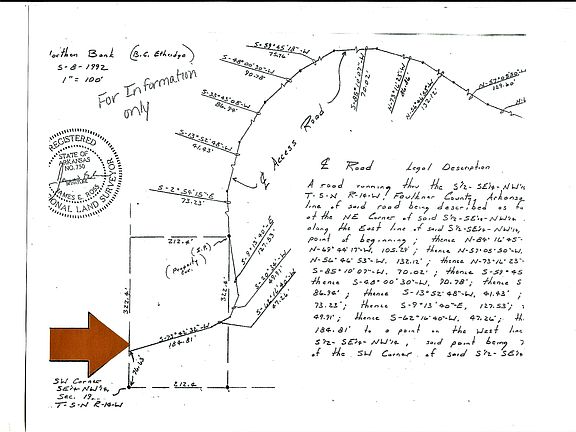 Northen Bank (B.C. Etheridge)
5-8-1992
1" = 100'
For Information
only
REGISTERED
STATE OF
ARKANSAS
NO. 750
SIGNATURE
JAMES E. ROSS
LAND SURVEYOR
S-59°45'18"-W
75.16'
S-48°00'30"-W
90.78'
S-33°41'08"-W
86.74'
S-13°52'48"-W
41.43'
S-2°54'15"-E
73.23'
℄ Access Road
S-85°10'07"-W
70.02'
132.12'
N-57°05'30"-W
129.60'
212.4'
(I.P.)
(Property Cor.)
S-9°13'40"-E
127.53'
49.91'
S-62°16'40"-W
47.26'
322.4'
322.4'
S-73°42'36"-W
184.81'
76.63'
212.4
SW Corner
SE¼ NW¼
Sec. 19
T-5-N R-14-W
℄ Road Legal Description
A road running thru the S½-SE¼-NW¼
T-5-N R-14-W, Faulkner County, Arkansas
line of said road being described as
at the NE Corner of said S½-SE¼-NW¼
along the East line of said S½-SE¼-NW¼,
point of beginning; thence N-84°16'45"-
105.29', thence N-57°05'30"-W,
N-56°46'53"-W, 132.12'; thence N-73°16'25"
S-85°10'07"-W, 70.02'; thence S-59°45
thence S-48°00'30"-W, 90.78'; thence S
86.74'; thence S-13°52'48"-W, 41.43';
73.23'; thence S-9°13'40"-E, 127.53';
49.91'; thence S-62°16'40"-W, 47.26'; th
184.81' to a point on the West line
S½-SE¼-NW¼, said point being
of the SW Corner of said S½-SE¼